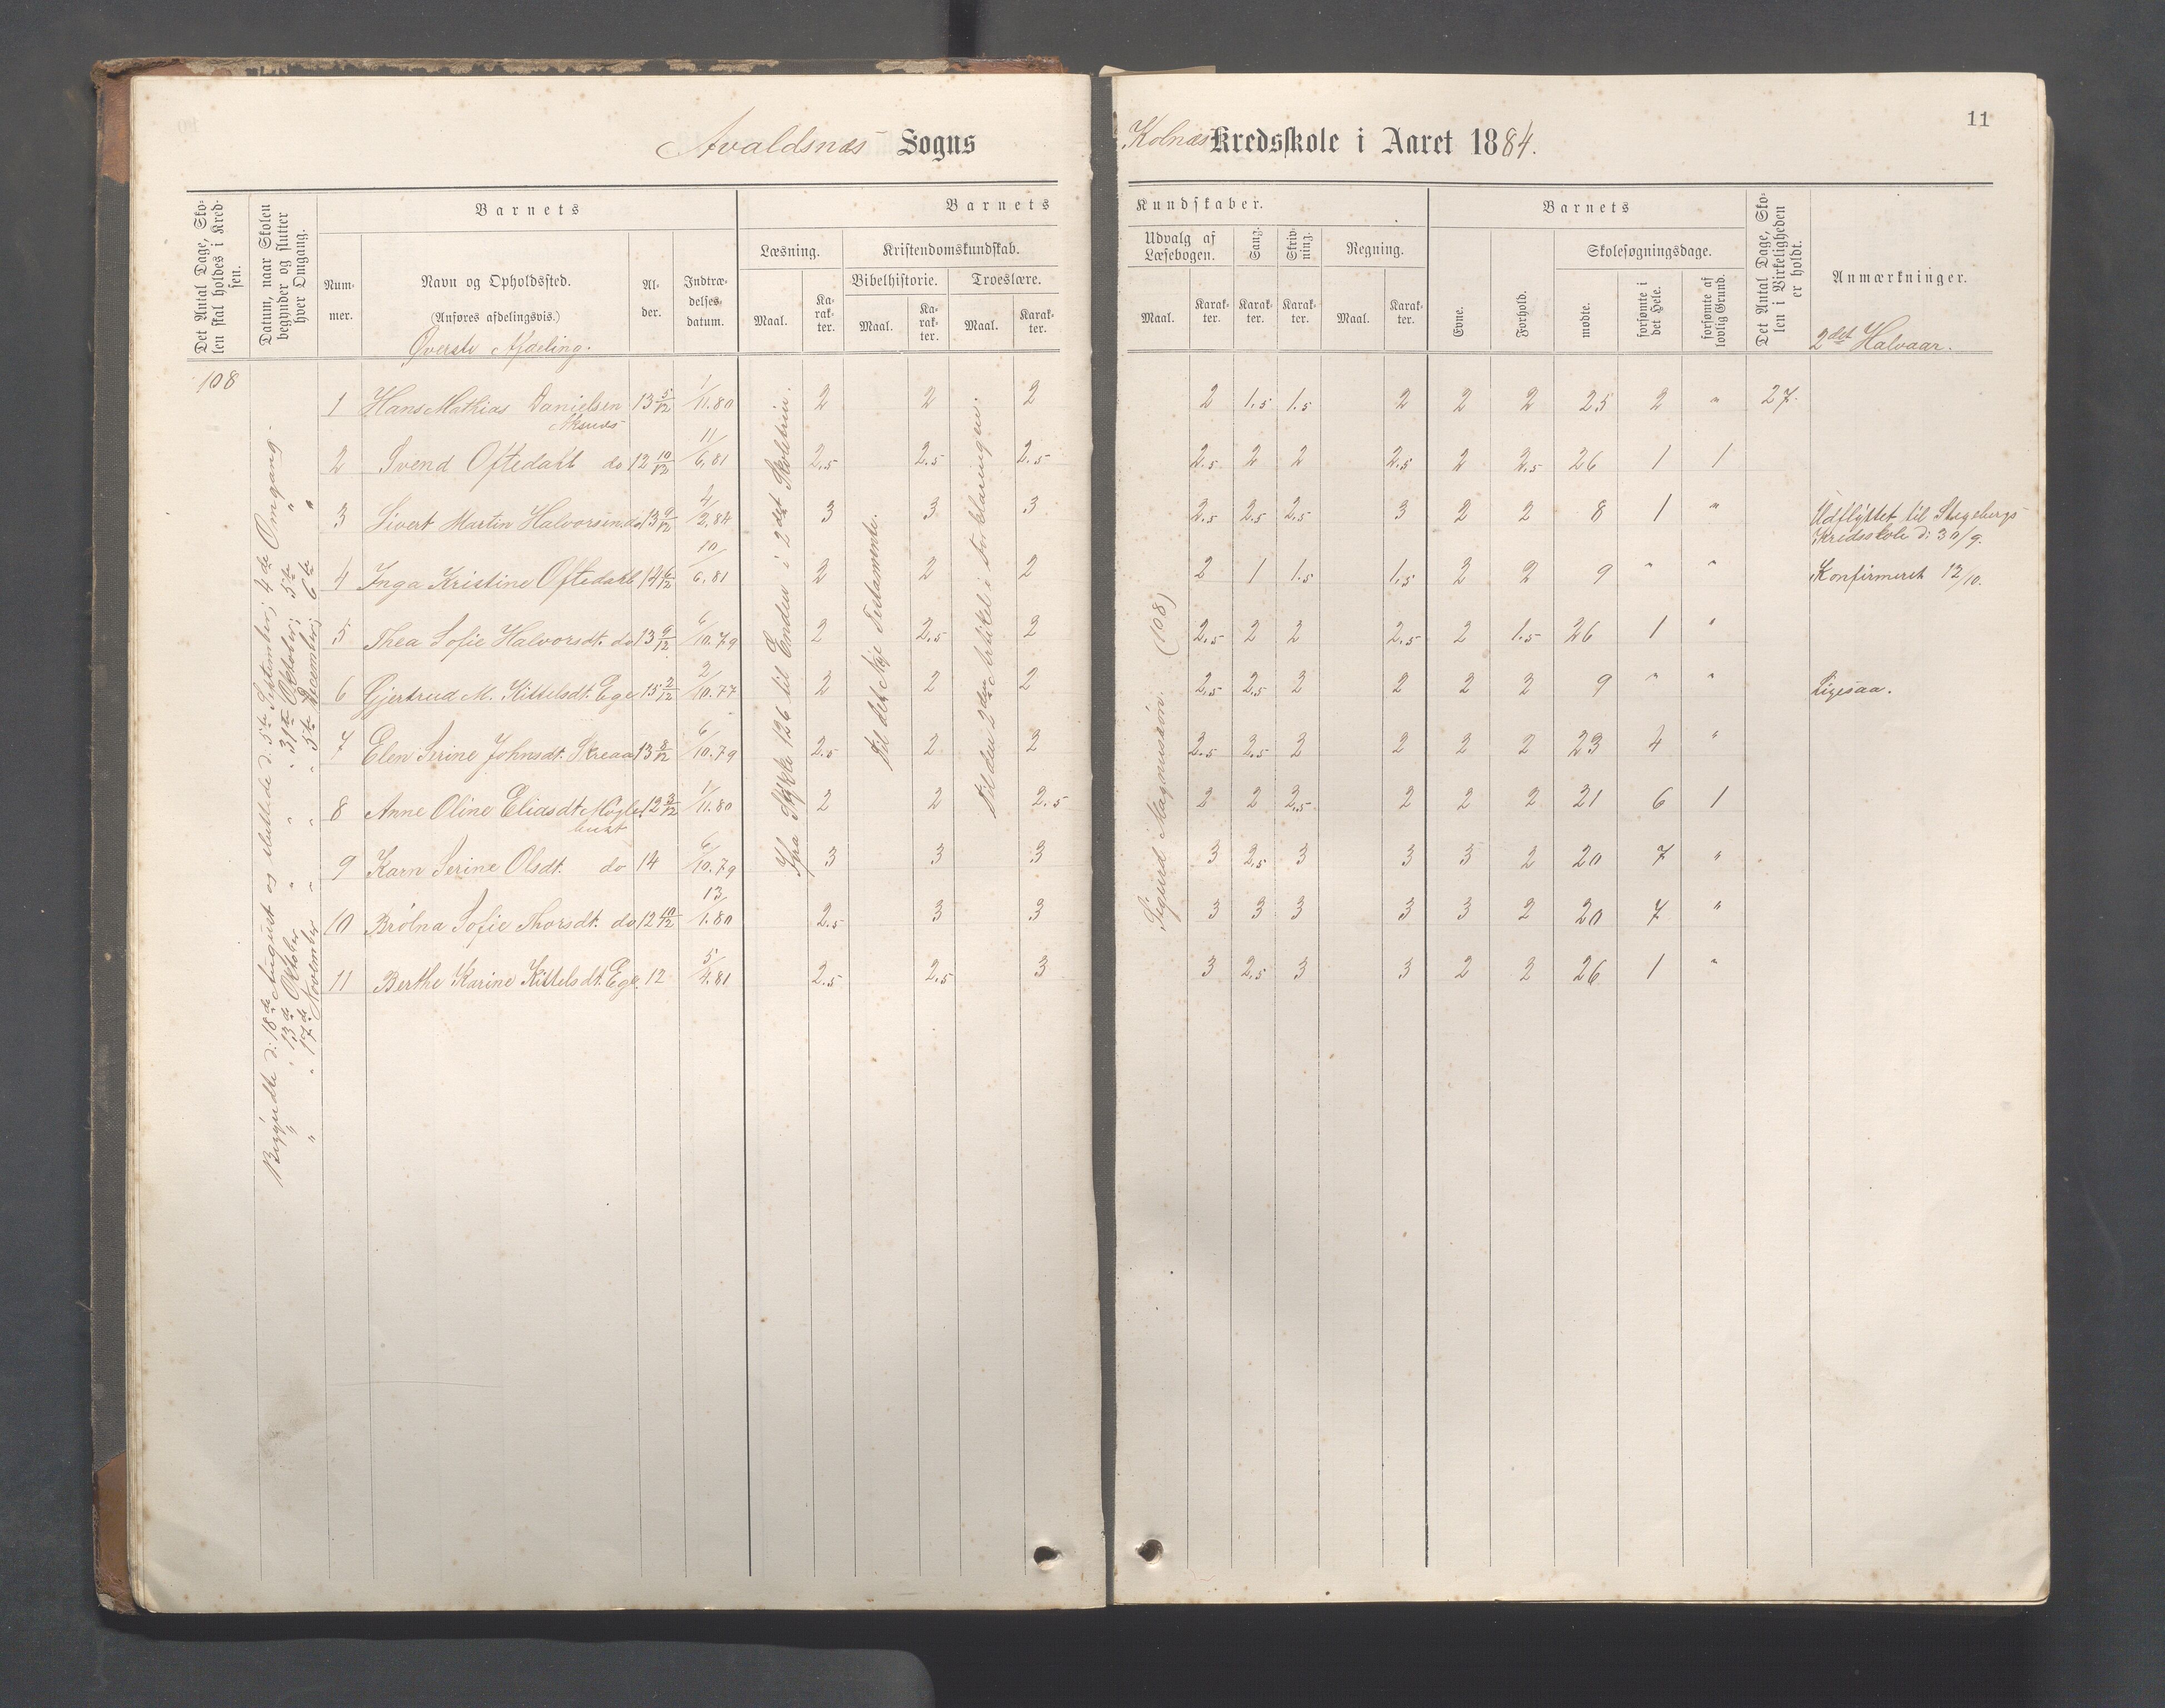 11
Avaldsnæs Sogns
Kolnæs Kredsskole i Aaret 1884.
Det Antal Dage, Skolen skal holdes i Kredsen.
Datum, naar Skolen begynder og slutter hver Omgang.
Barnets
Nummer.
Navn og Opholdssted.
(Anføres afdelingsvis.)
Øverste Afdeling.
Alder.
Indtrædelsesdatum.
Barnets
Læsning.
Kristendomskundskab.
Bibelhistorie.
Troeslære.
Maal.
Karakter.
Maal.
Karakter.
Maal.
Karakter.
Kundskaber.
Udvalg af Læsebogen.
Sang.
Skrivning.
Regning.
Maal.
Karakter.
Karakter.
Karakter.
Maal.
Karakter.
Barnets
Evne.
Forhold.
Skolesøgningsdage.
mødte.
forsømte i det Hele.
forsømte af lovlig Grund.
Det Antal Dage, Skolen i Virkeligheden er holdt.
Anmærkninger.
2det Halvaar.
108
Begyndte d: 18de August og sluttede d. 5te September; 4de Omgang.
" " 13de Oktober " " 31te Oktober; 5te "
" " 17de November " " 5te December; 6te "
Fra Stykke 126 til Enden i 2det Skoletrin.
Til det Nye Testamente.
Til den 2den Artikel i Forklaringen.
Sigurd Magnussøn. (108)
1 Hans Mathias Danielsen 13 5/12 1/11.80 2 2 2 2 1.5 1.5 2 2 2 25 2 " 27.
Aksnes
2 Svend Oftedahl do 12 10/12 11/6.81 2.5 2.5 2.5 2.5 2 2 2.5 2 2.5 26 1 1
3 Sivert Martin Halvorsen do 13 9/12 4/2.84 3 3 3 2.5 2.5 2.5 3 2 2 8 1 " Udflyttet til Stegebergs Kredsskole d: 30/9.
4 Inga Kristine Oftedahl 14 6/12 10/6.81 2 2 2 2 1 1.5 1.5 2 2 9 " " Konfirmeret 12/10.
5 Thea Sofie Halvorsdt. do 13 9/12 6/10.79 2 2.5 2 2.5 2 2 2.5 2 1.5 26 1 "
6 Gjertrud M. Kittelsdt. Ege 15 2/12 2/10.77 2 2 2 2.5 2.5 2 2 2 2 9 " " Ligesaa.
7 Elen Serine Johnsdt. Skreaa 13 8/12 6/10.79 2.5 2 2 2.5 2.5 2 2 2 2 23 4 "
8 Anne Oline Eliasdt Møgle- 12 3/12 1/11.80 2 2 2.5 2 2 2.5 2 2 2 21 6 1
bukt
9 Karn Serine Olsdt. do 14 6/10.79 3 3 3 3 2.5 3 3 3 2 20 7 "
10 Brølna Sofie Thorsdt. do 12 10/12 13/1.80 2.5 3 3 3 3 3 3 3 2 20 7 "
11 Berthe Karine Kittelsdt. Ege. 12 5/4.81 2.5 2.5 3 3 2.5 3 3 2 2 26 1 "